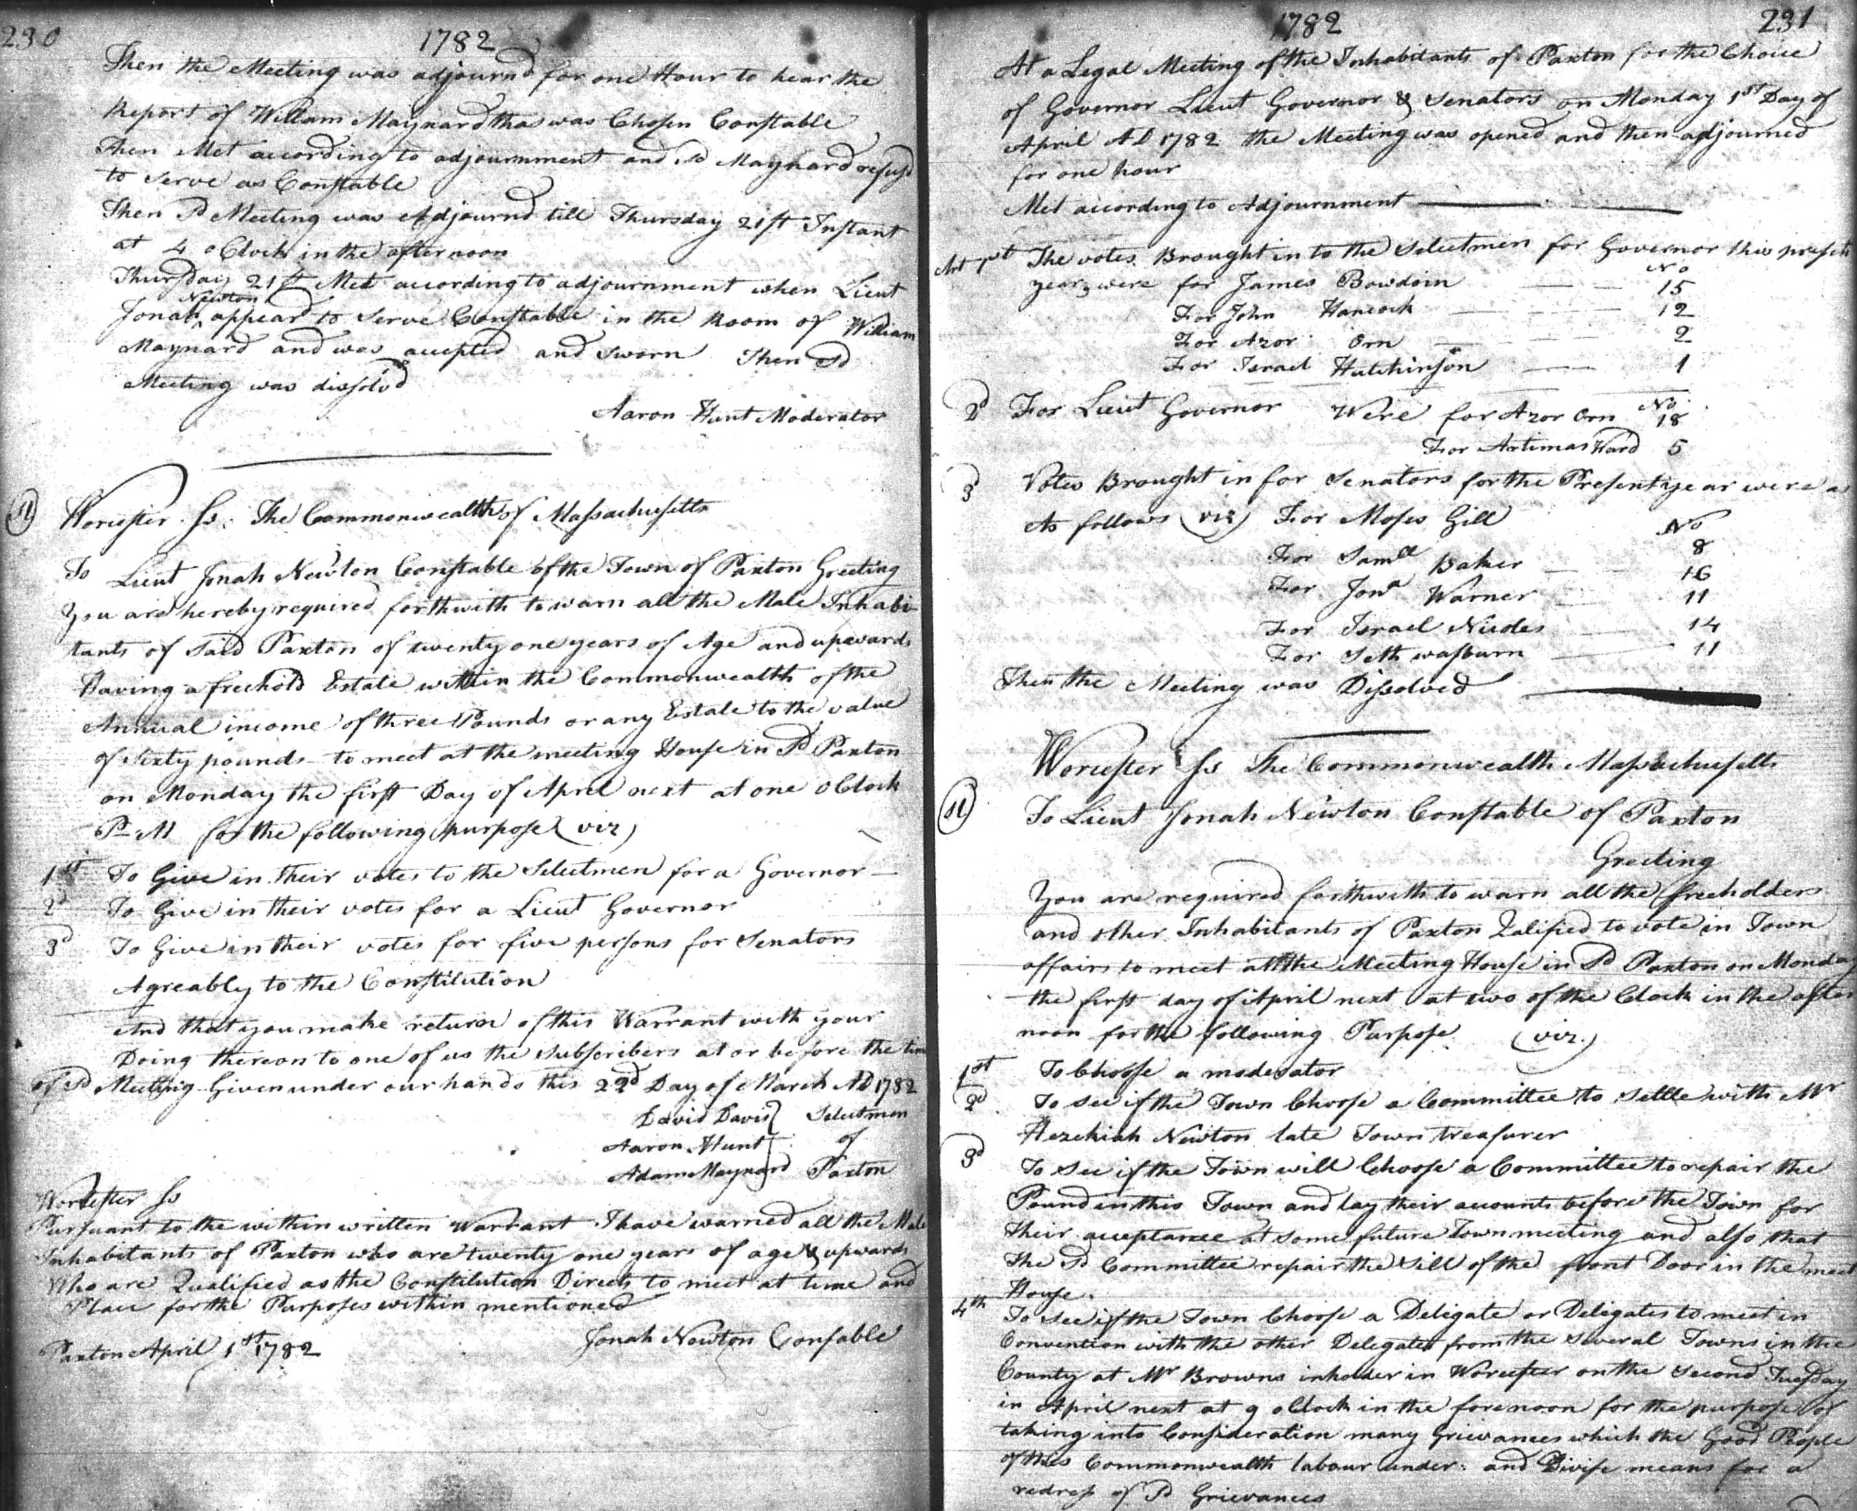 230
1782
Then the Meeting was adjournd for one Hour to hear the
Report of Willam Maynard tha was Chosen Constable
Then Met according to adjournment and sd Maynard refusd
to serve as Constable
Then sd Meeting was Adjournd till Thursday 21st Instant
at 4 oClock in the afternoon
Thursday 21st Met according to adjournment when Lieut
Jonah Newton appeard to serve Constable in the Room of William
Maynard and was accepted and sworn Then sd
Meeting was dissolvd
Aaron Hunt Moderator
Worcester Ss. The Commonwealth of Massachusetts
To Lieut Jonah Newton Constable of the Town of Paxton Greeting
You are hereby required forthwith to warn all the Male Inhabi-
tants of said Paxton of twenty one years of Age and upwards
Having a freehold Estate within the Commonwealth of the
Annual income of three Pounds or any Estate to the value
of sixty pounds - to meet at the meeting House in sd Paxton
on Monday the first Day of April next at one oClock
P M for the following purpose (viz)
1st To Give in their votes to the Selectmen for a Governor
2d To Give in their votes for a Lieut Governor
3d To Give in their votes for five persons for Senators
Agreably to the Constitution
And that you make return of this Warrant with your
Doing thereon to one of us the Subscribers at or before the time
of sd Meeting Given under our hands this 22d Day of March AD 1782
David Davis } Selectmen
Aaron Hunt } of
Adam Maynard } Paxton
Worcester Ss
Pursuant to the within written Warrant I have warned all the Male
Inhabitants of Paxton who are twenty one years of age & upwards
Who are Qualified as the Constitution Directs to meet at time and
Place for the Purposes within mentioned
Jonah Newton Constable
Paxton April 1st 1782
1782
231
At a Legal Meeting of the Inhabitants of Paxton for the Choice
of Governor Lieut Governor & Senators on Monday 1st Day of
April AD 1782 the Meeting was opened and then adjourned
for one hour
Met according to Adjournment
Art 1st The votes Brought in to the Selectmen for Governor this present
No
year were for James Bowdoin 15
For John Hancock 12
For Azor Orn 2
For Israel Hutchinson 1
2d For Lieut Governor Were for Azor Orn No 18
For Artimas Ward 5
3d Votes Brought in for Senators for the Present year were as
As follows (viz) For Moses Gill No 8
For Samll Baker 16
For Jona Warner 11
For Israel Nicdes 14
For Seth wasburn 11
Then the Meeting was Dissolved
Worcester Ss The Commonwealth Massachusetts
To Lieut Jonah Newton Constable of Paxton
Greeting
You are required forthwith to warn all the freeholders
and other Inhabitants of Paxton Qalified to vote in Town
affairs to meet att the Meeting House in sd Paxton on Monday
the first day of April next at two of the Clock in the after
noon for the following Purpose (viz.)
1st To Choose a moderator
2d To see if the Town Choose a Committee to settle with Mr
Hezekiah Newton late Town treasurer
3d To see if the Town will Choose a Committee to repair the
Pound in this Town and lay their accounts before the Town for
their acceptance at some future Town meeting and also that
the sd Committee repair the Sill of the front Door in the meet
House.
4th To see if the Town Choose a Deligate or Deligates to meet in
Convention with the other Delegates from the several Towns in the
County at Mr Browns inholder in Worcester on the second Tuesday
in April next at 9 oClock in the forenoon for the purpose of
taking into Consideration many Grievances which the Good People
of this Commonwealth labour under: and Divise means for a
redress of sd Grievances